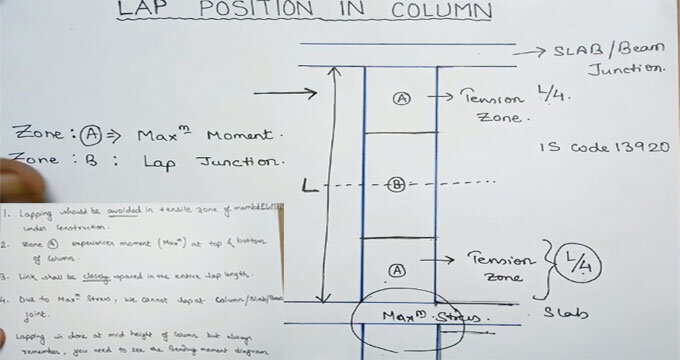 LAP POSITION IN COLUMN
SLAB/Beam
Junction.
A
Tension
Zone.
L/4.
Zone : A ⇒ Maxᵐ Moment.
Zone : B : Lap Junction.
IS code 13920
L
B
1. Lapping should be avoided in tensile zone of
under construction.
2. Zone A experiences moment (Maxᵐ) at top & bottom
of column.
3. Link shall be closely spaced in the entire lap length.
4. Due to Maxᵐ Stress, we cannot lap at Column/Slab/Beam
joint.
Lapping is done at mid height of column but always
remember, you need to see the Bending moment diagram
A
Tension
Zone
L/4
Slab
Maxᵐ Stress.